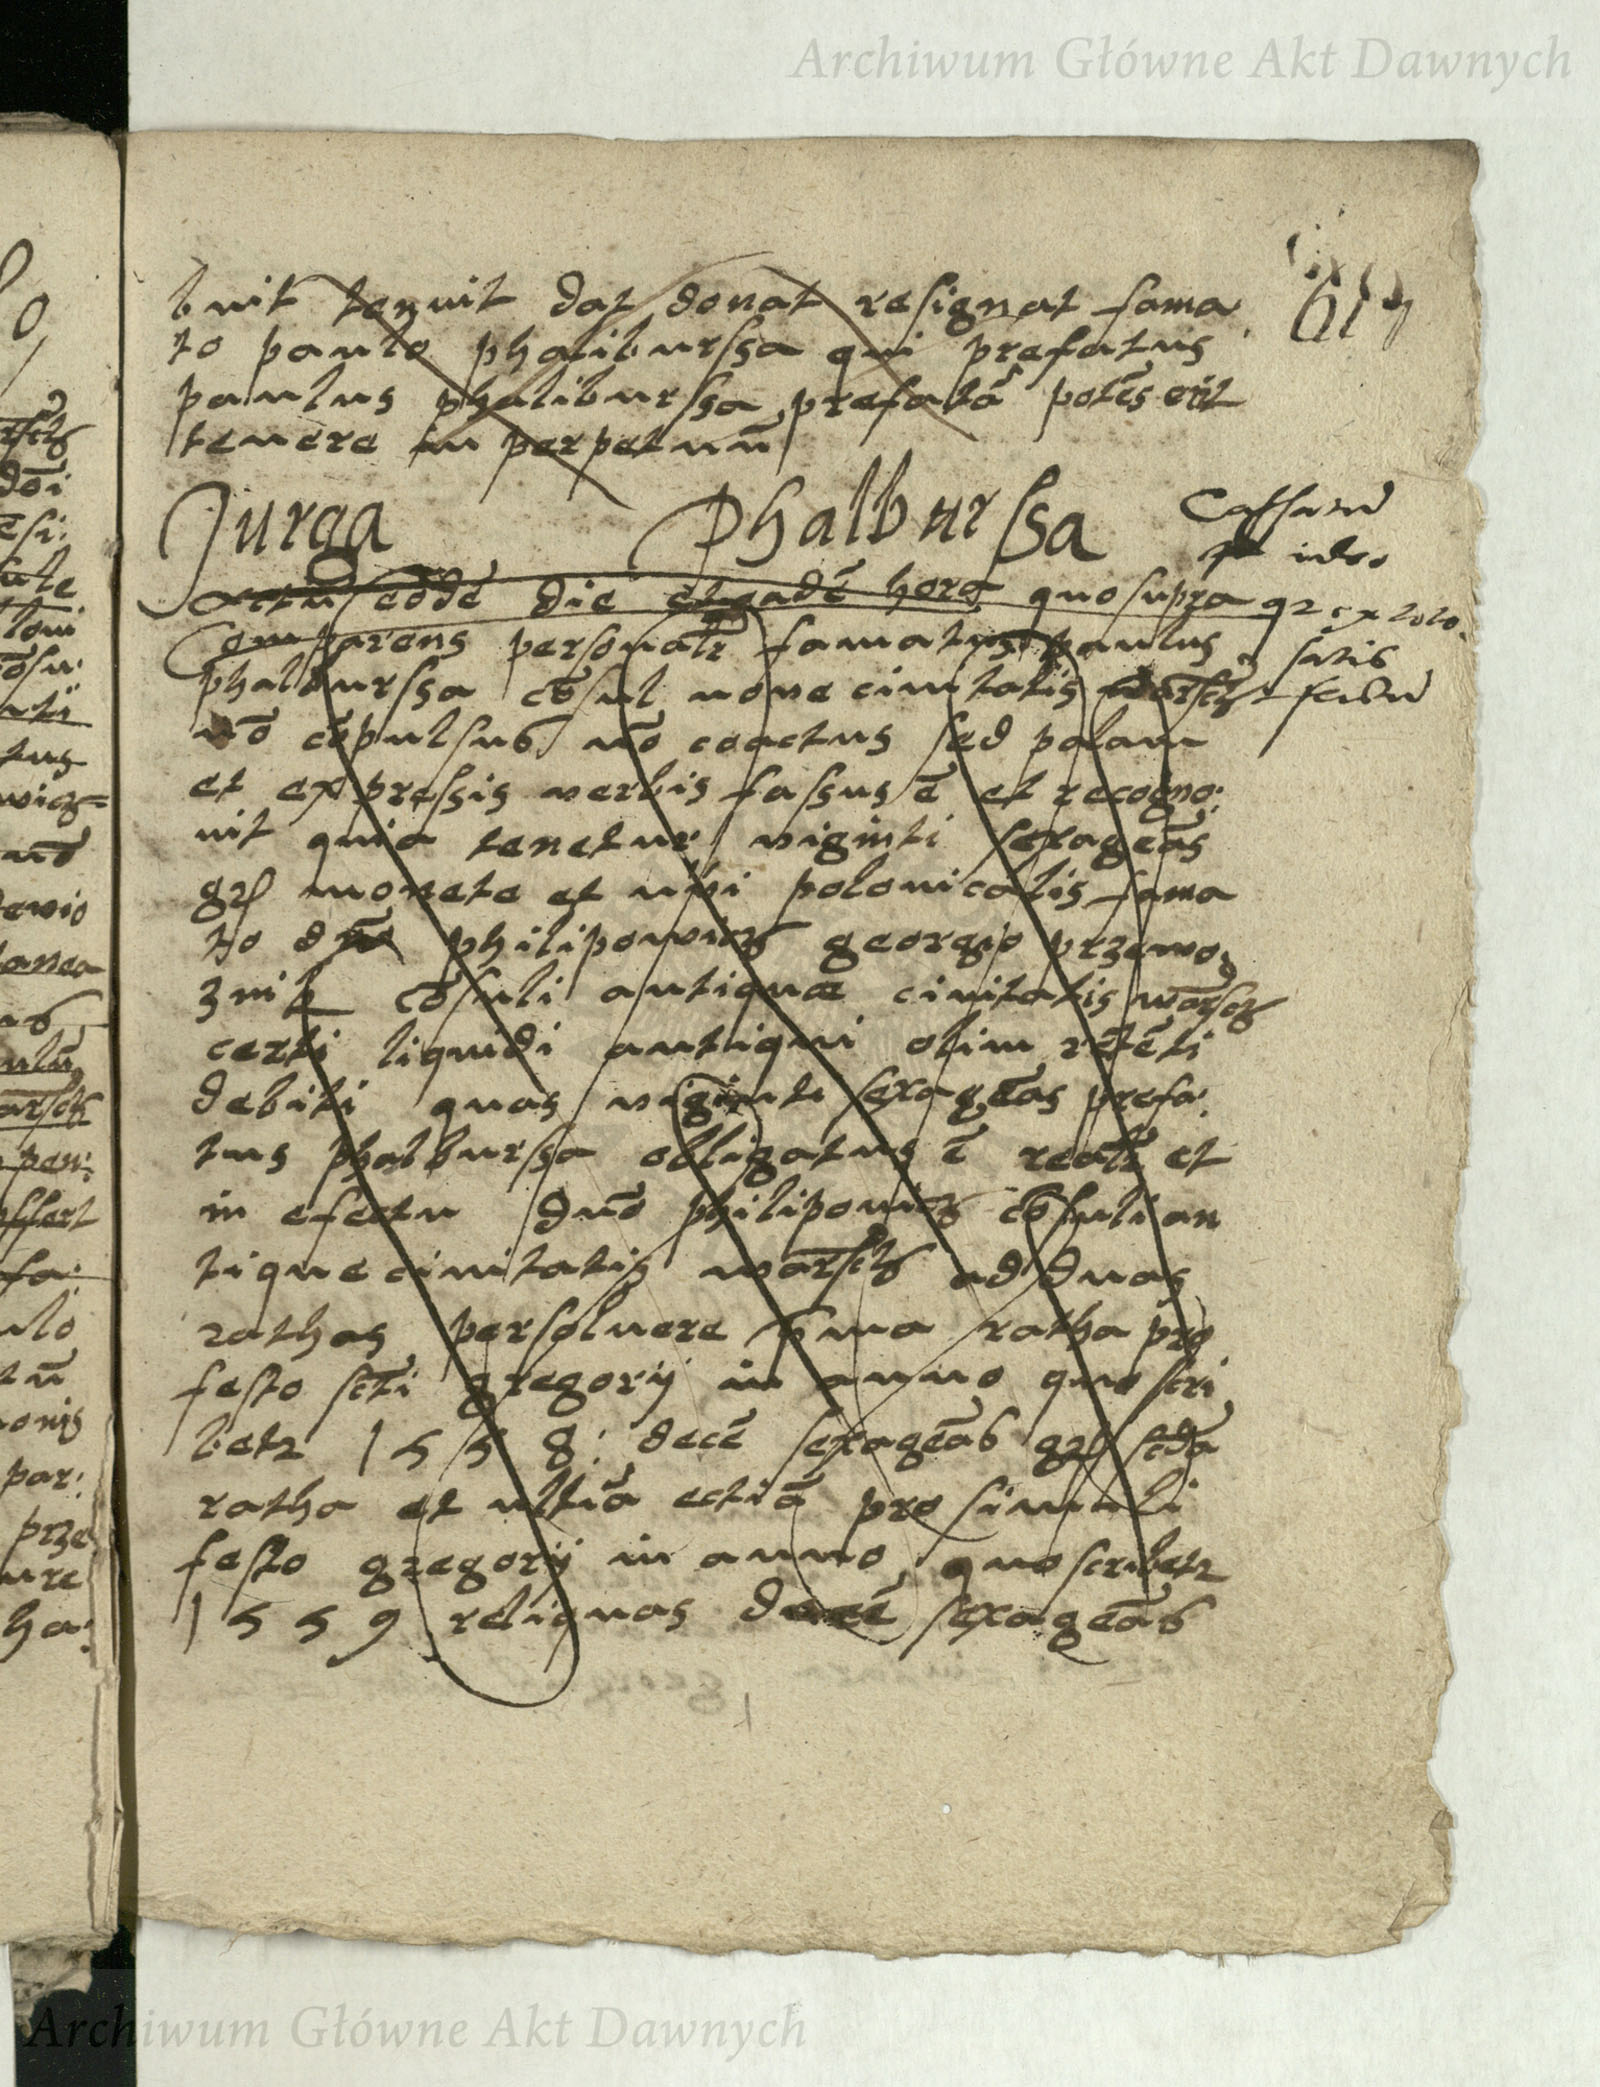 Archiwum Główne Akt Dawnych
buit tenuit dat donat resignat fama
to paulo phaliburssa qui prefatus
paulus phaliburssa prefatā potēs erit
tenere in perpetuū
Jurga Phalburssa
Cassatū
ideo
qz ex toto
satis
factū
Actū eodē die et eadē hora quo supra
Comparens personalr famatus paulus
phalburssa cōsul none ciuitatis warsch
nō cōpulsus nō coactus sed palam
et expressis verbis fassus ē et recogno:
uit quia tenetur viginti sexagēas
grs monete et nūi polonicalis fama
to dno philipowicz georgio przewo
znik cōsuli antiquæ ciuitatis warsch
certi liquidi antiqui olim retēti
debiti quas viginti sexagēas prefa:
tus phalburssa obligatus ē realr et
in efectu dnō philipouicz cōsuli an
tique ciuitatis warsch ad duas
rathas persoluere vna ratha pro
festo scti gregorij in anno quo scri
betr 1558: decē sexagēas grs scdā
ratha et ultiā ectiā pro simili
festo gregorij in anno quo scribetr
1559 reliquas decē sexagēas
Archiwum Główne Akt Dawnych